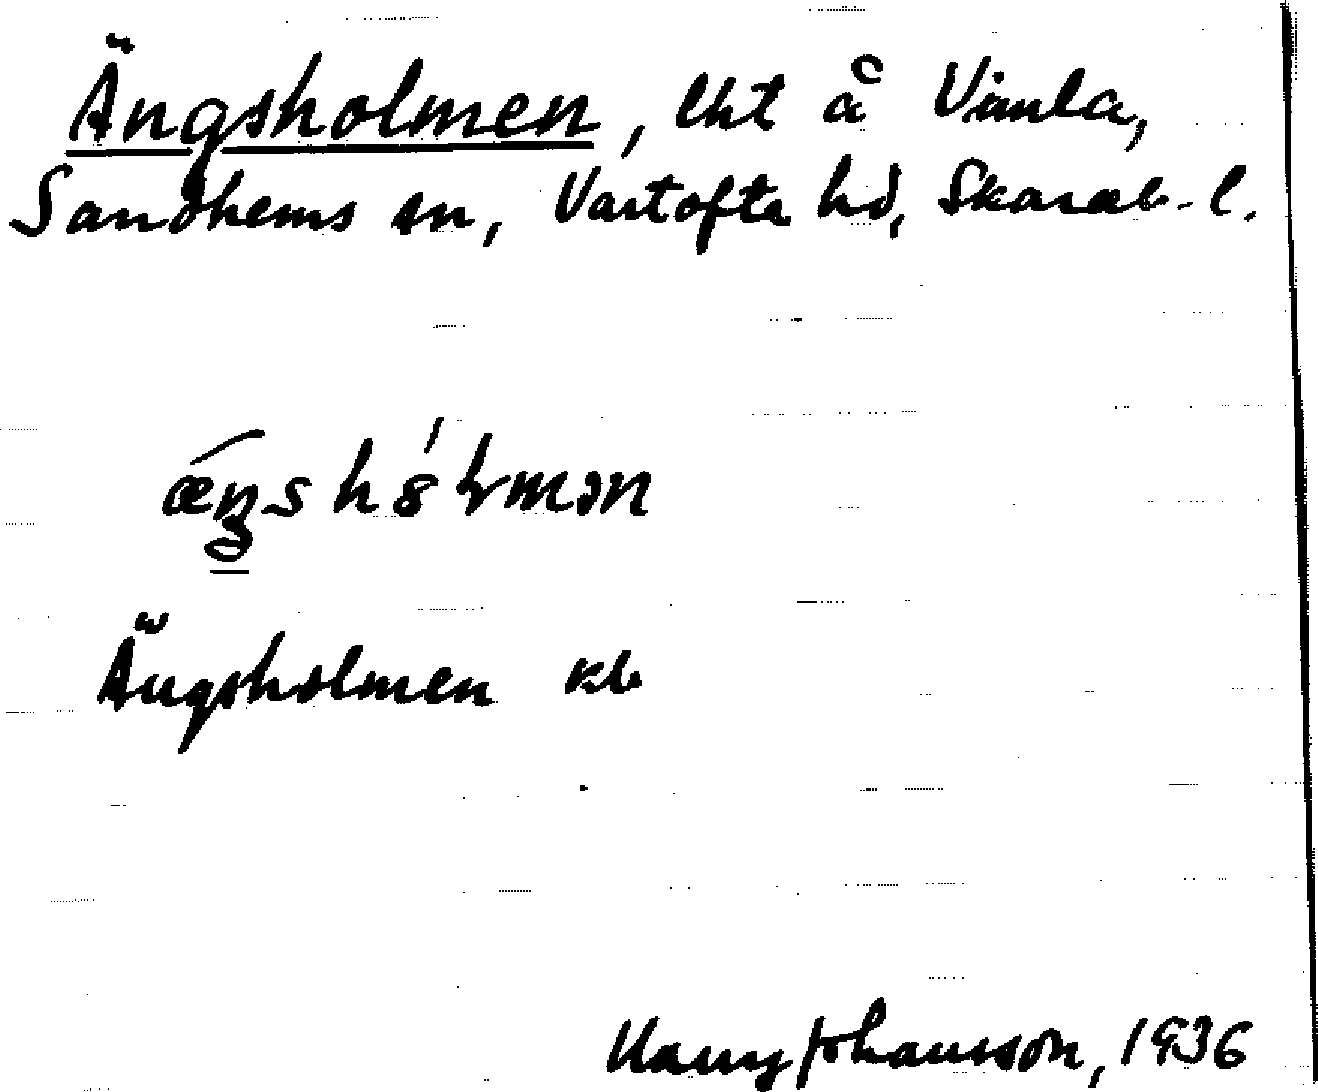 Ängsholmen, lht å Vimla,
Sandhems sn, Vartofta hd, Skarab. l.
Ängsholmen kb
Harry Johansson, 1936